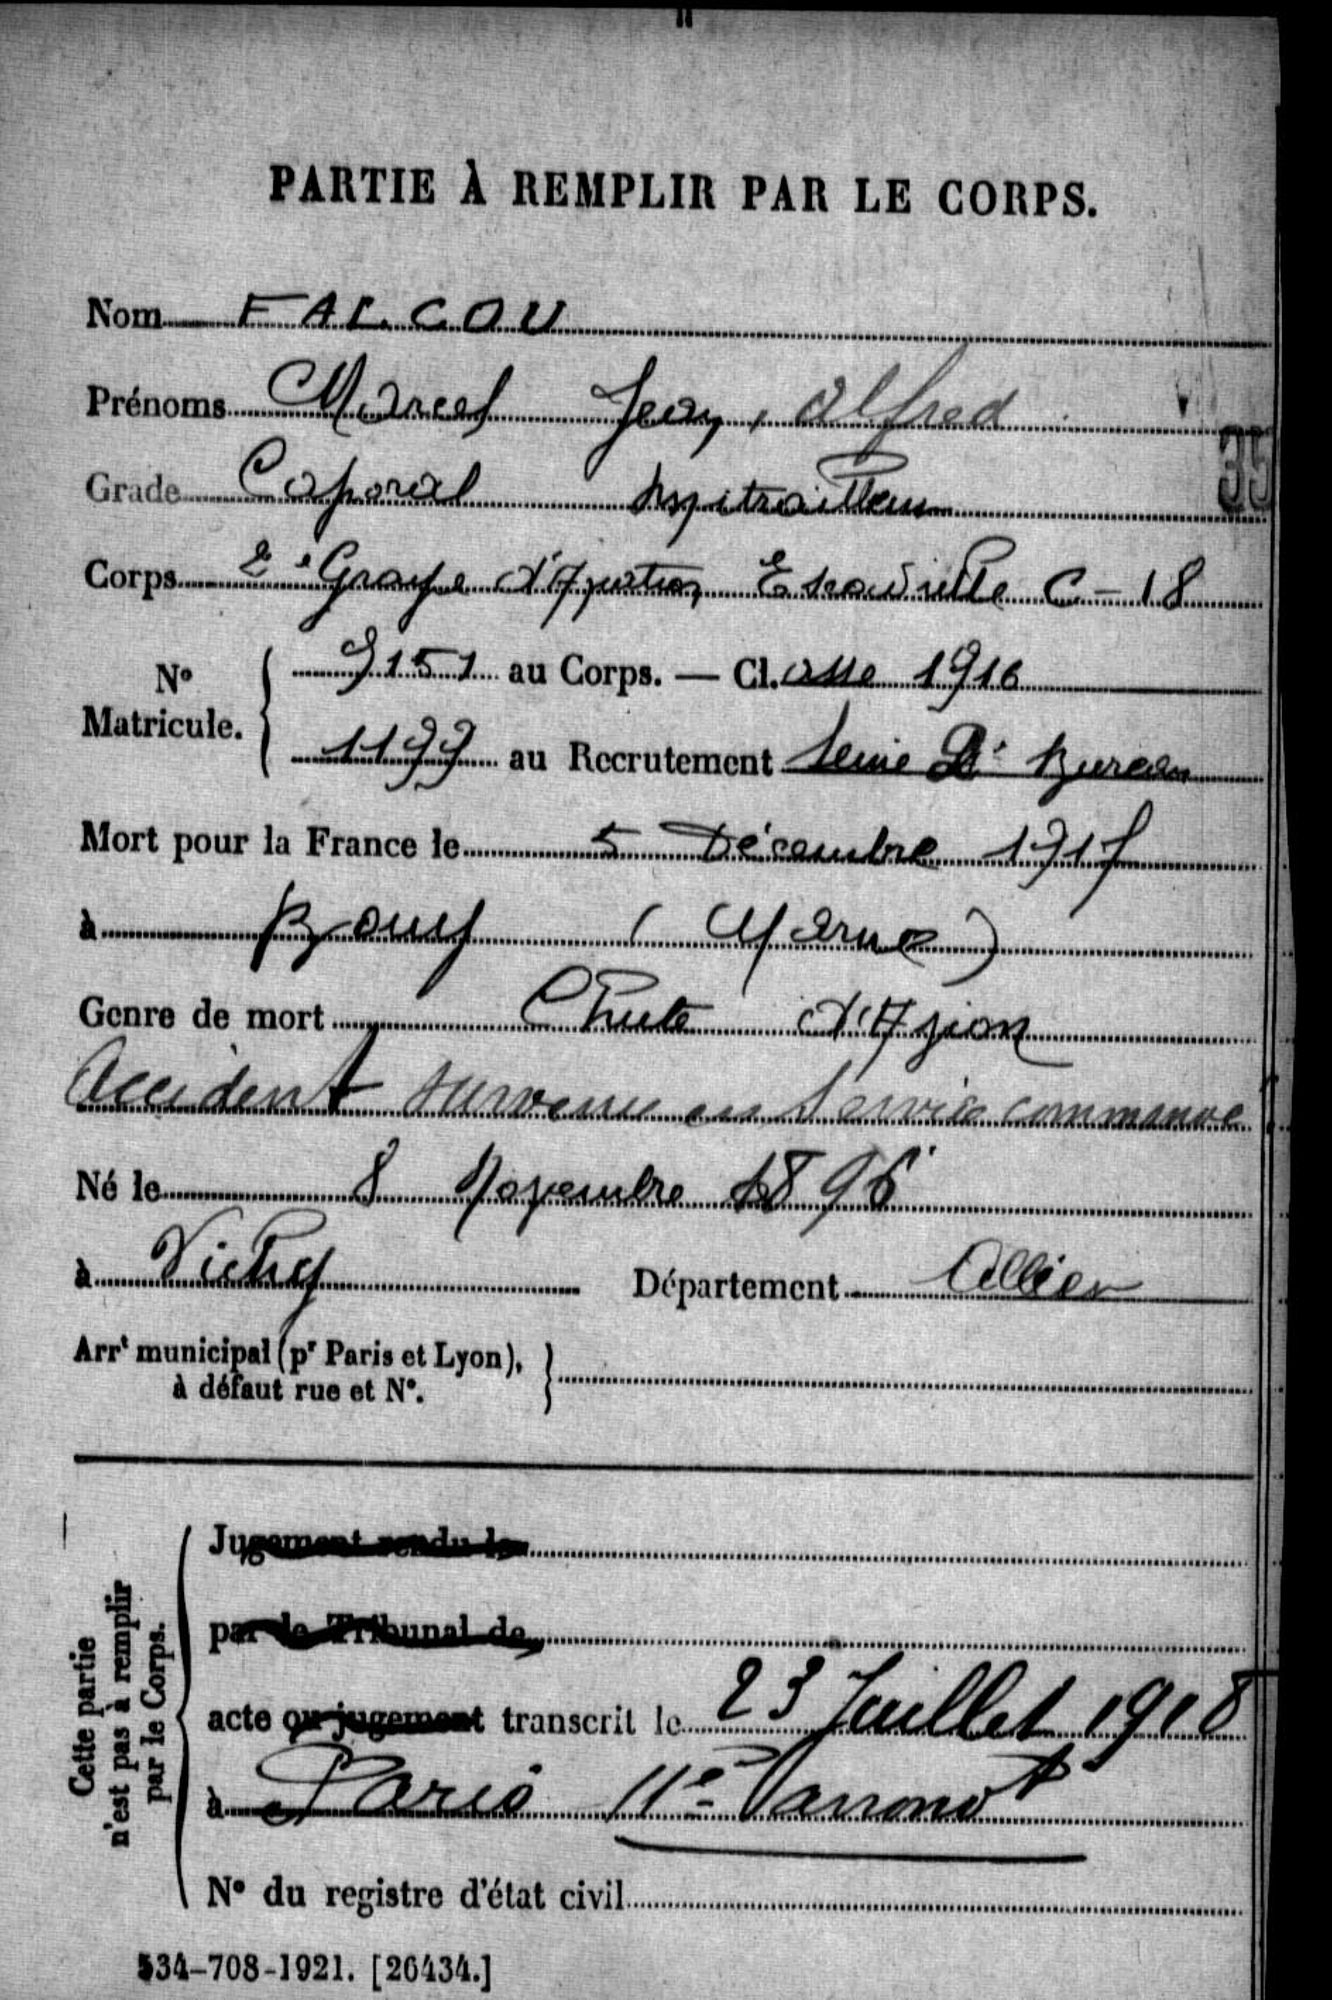 PARTIE À REMPLIR PAR LE CORPS.
Nom FALCOU
Prénoms Marcel Jean, Alfred
Grade Caporal Mitrailleur
35
Corps 2e Groupe d'Aviation Escadrille C-18
No Matricule. 9151 au Corps. — Cl.asse 1916
1199 au Recrutement Seine Bureau
Mort pour la France le 5 Décembre 1917
à Bouy (Marne)
Genre de mort Chute d'Avion
Accident survenu en Service commandé
Né le 8 Novembre 1896
à Vichy Département Allier
Arrt municipal (pr Paris et Lyon), à défaut rue et No.
Cette partie n'est pas à remplir par le Corps.
Jugement rendu le
par le Tribunal de
acte ou jugement transcrit le 23 Juillet 1918
à Paris 11e Arrondt
No du registre d'état civil
534-708-1921. [26434.]